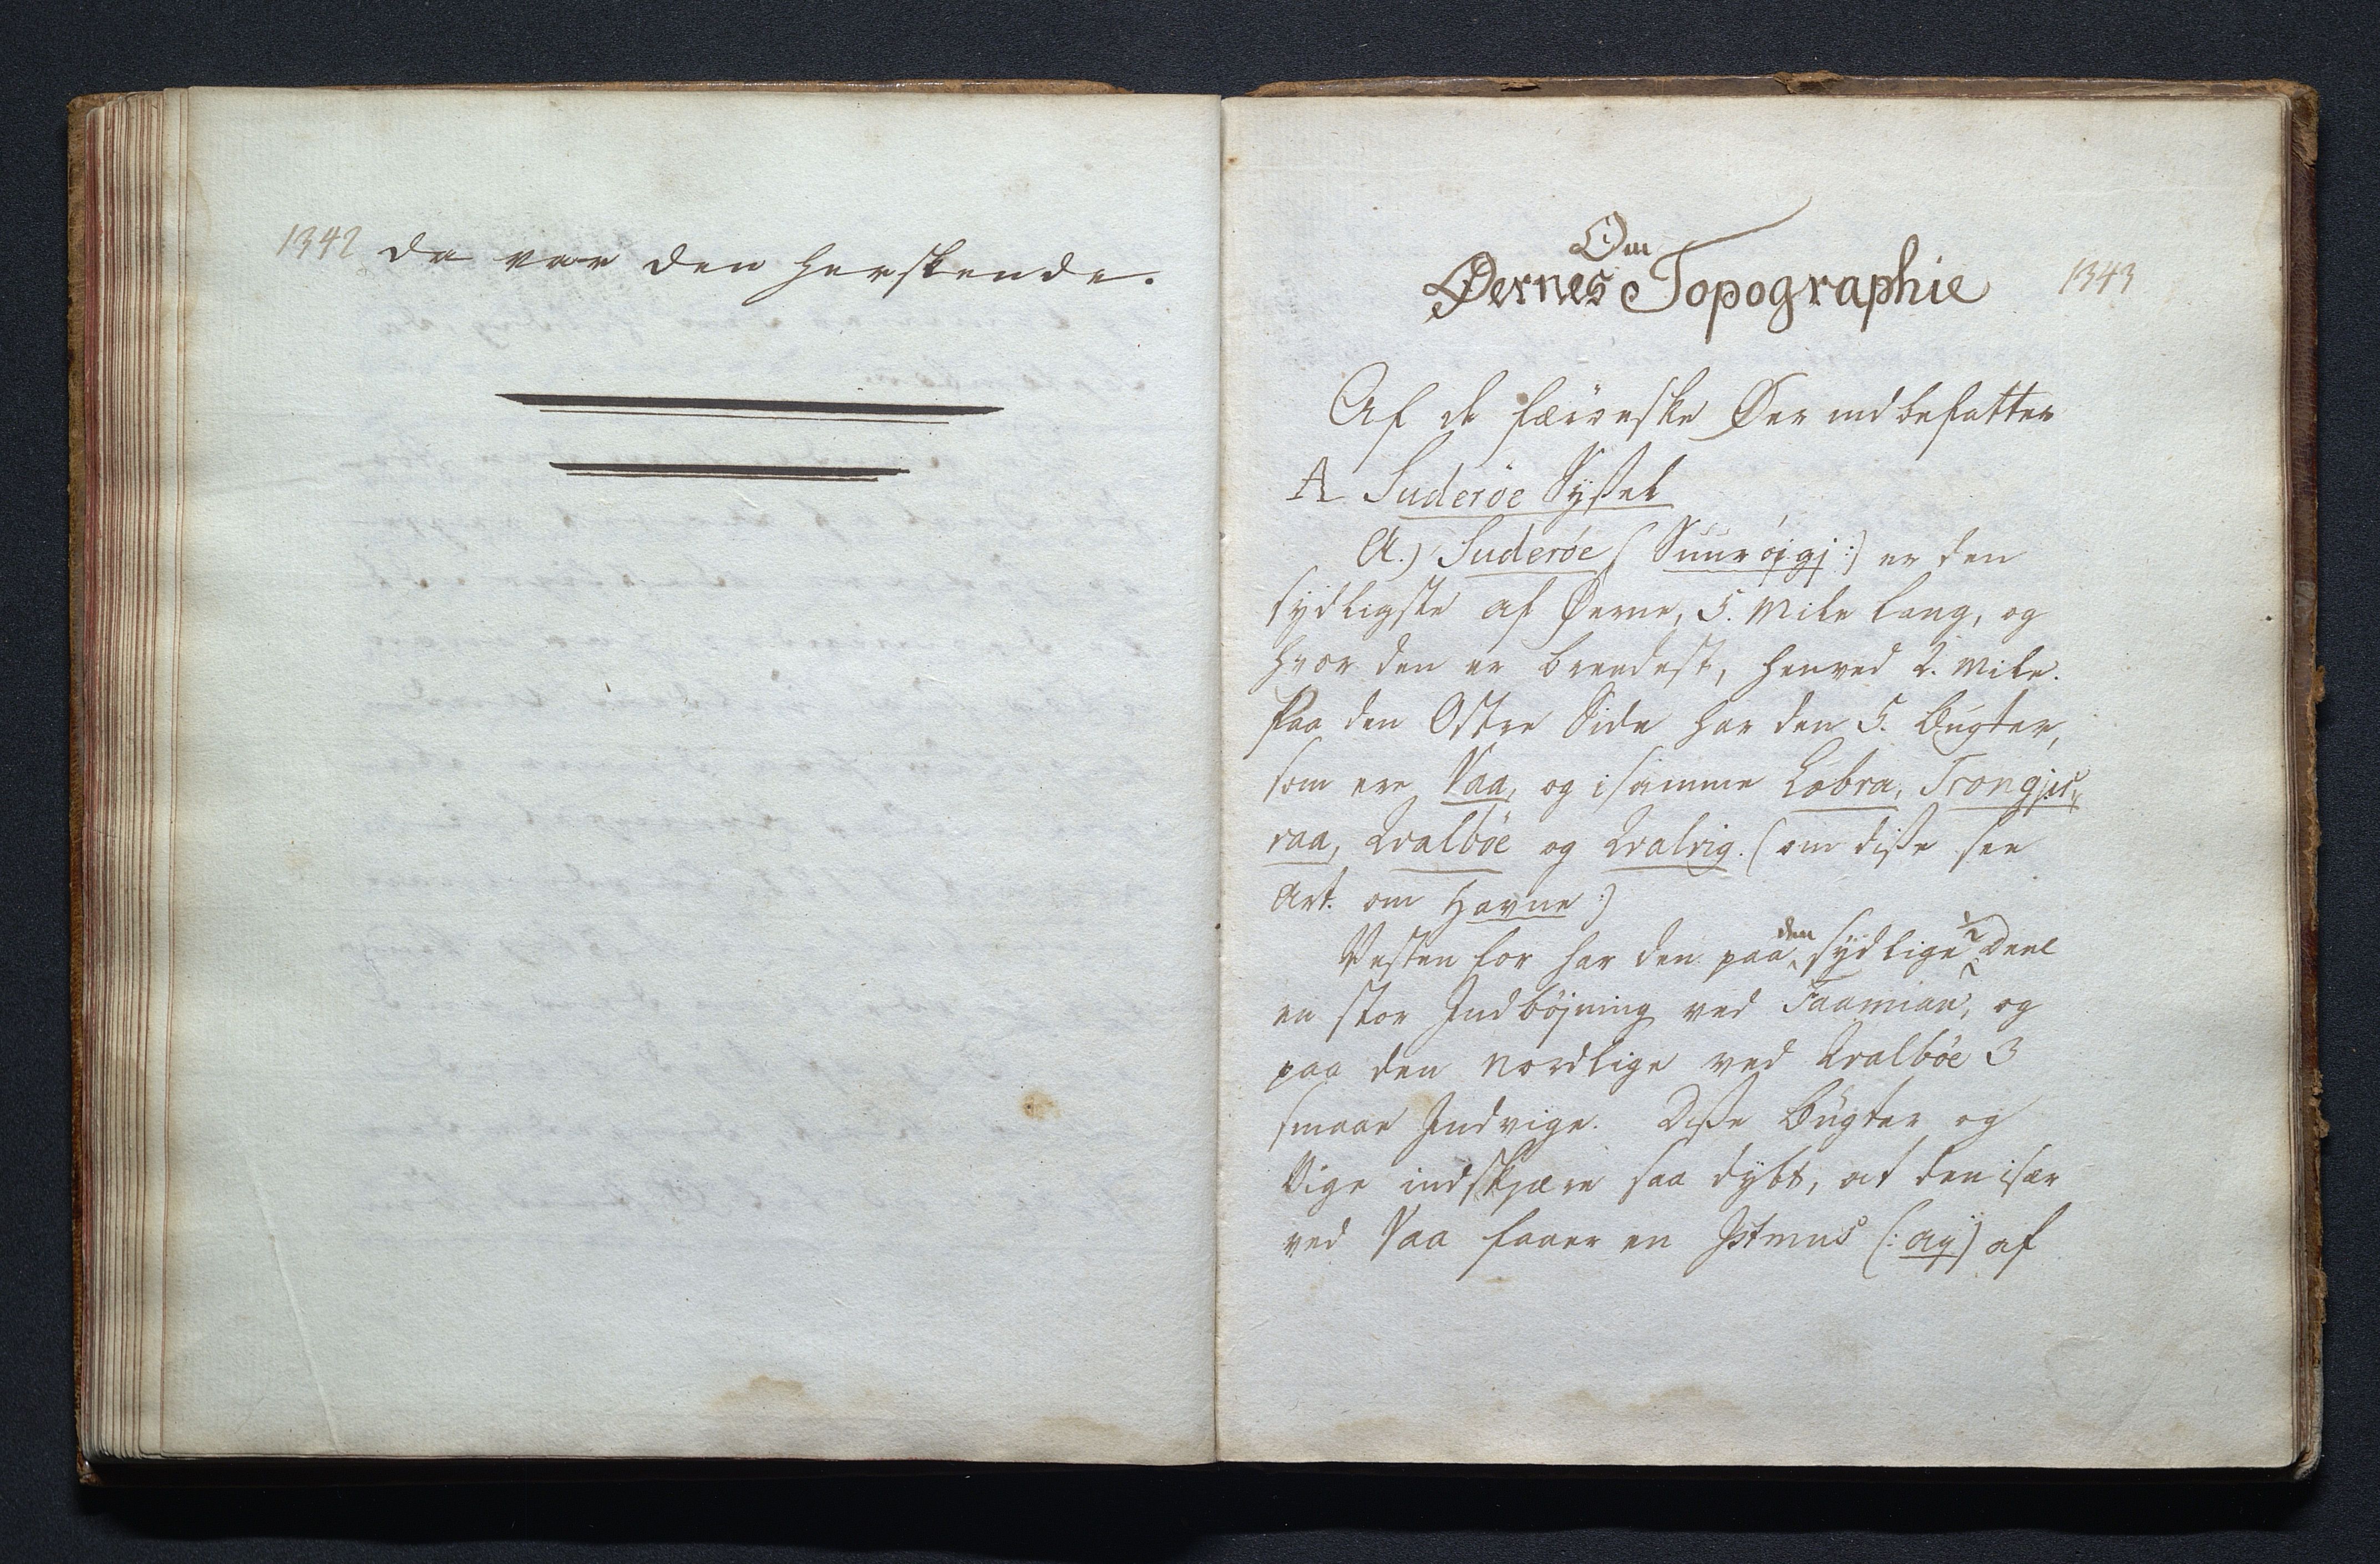 1342 da var den herskende.
Om
Øernes Topographie 1343
Af de færøeske Øer indbefatter
A Suderöe Syßel
A.) Suderöe (Suuröjgj:) er den
sydligste af Øerne, 5. Mile lang, og
hvor den er breedest, henved 2. Mile.
Paa den Ostre Side har den 5. Bugter,
som ere Vaa, og i samme Lobra, Trongjis„
vaa, Qvalböe og Qvalvig. (om diße see
Art. om Havne:)
Vesten for har den paa den sydlige ½ Deel
en stor Indböjning ved Faamian, og
paa den nordlige ved Qvalböe 3
smaae Indvige. Diße Bugter og
Vige indskjære saa dybt, at den især
ved Vaa faaer en Istmus (:ay) af